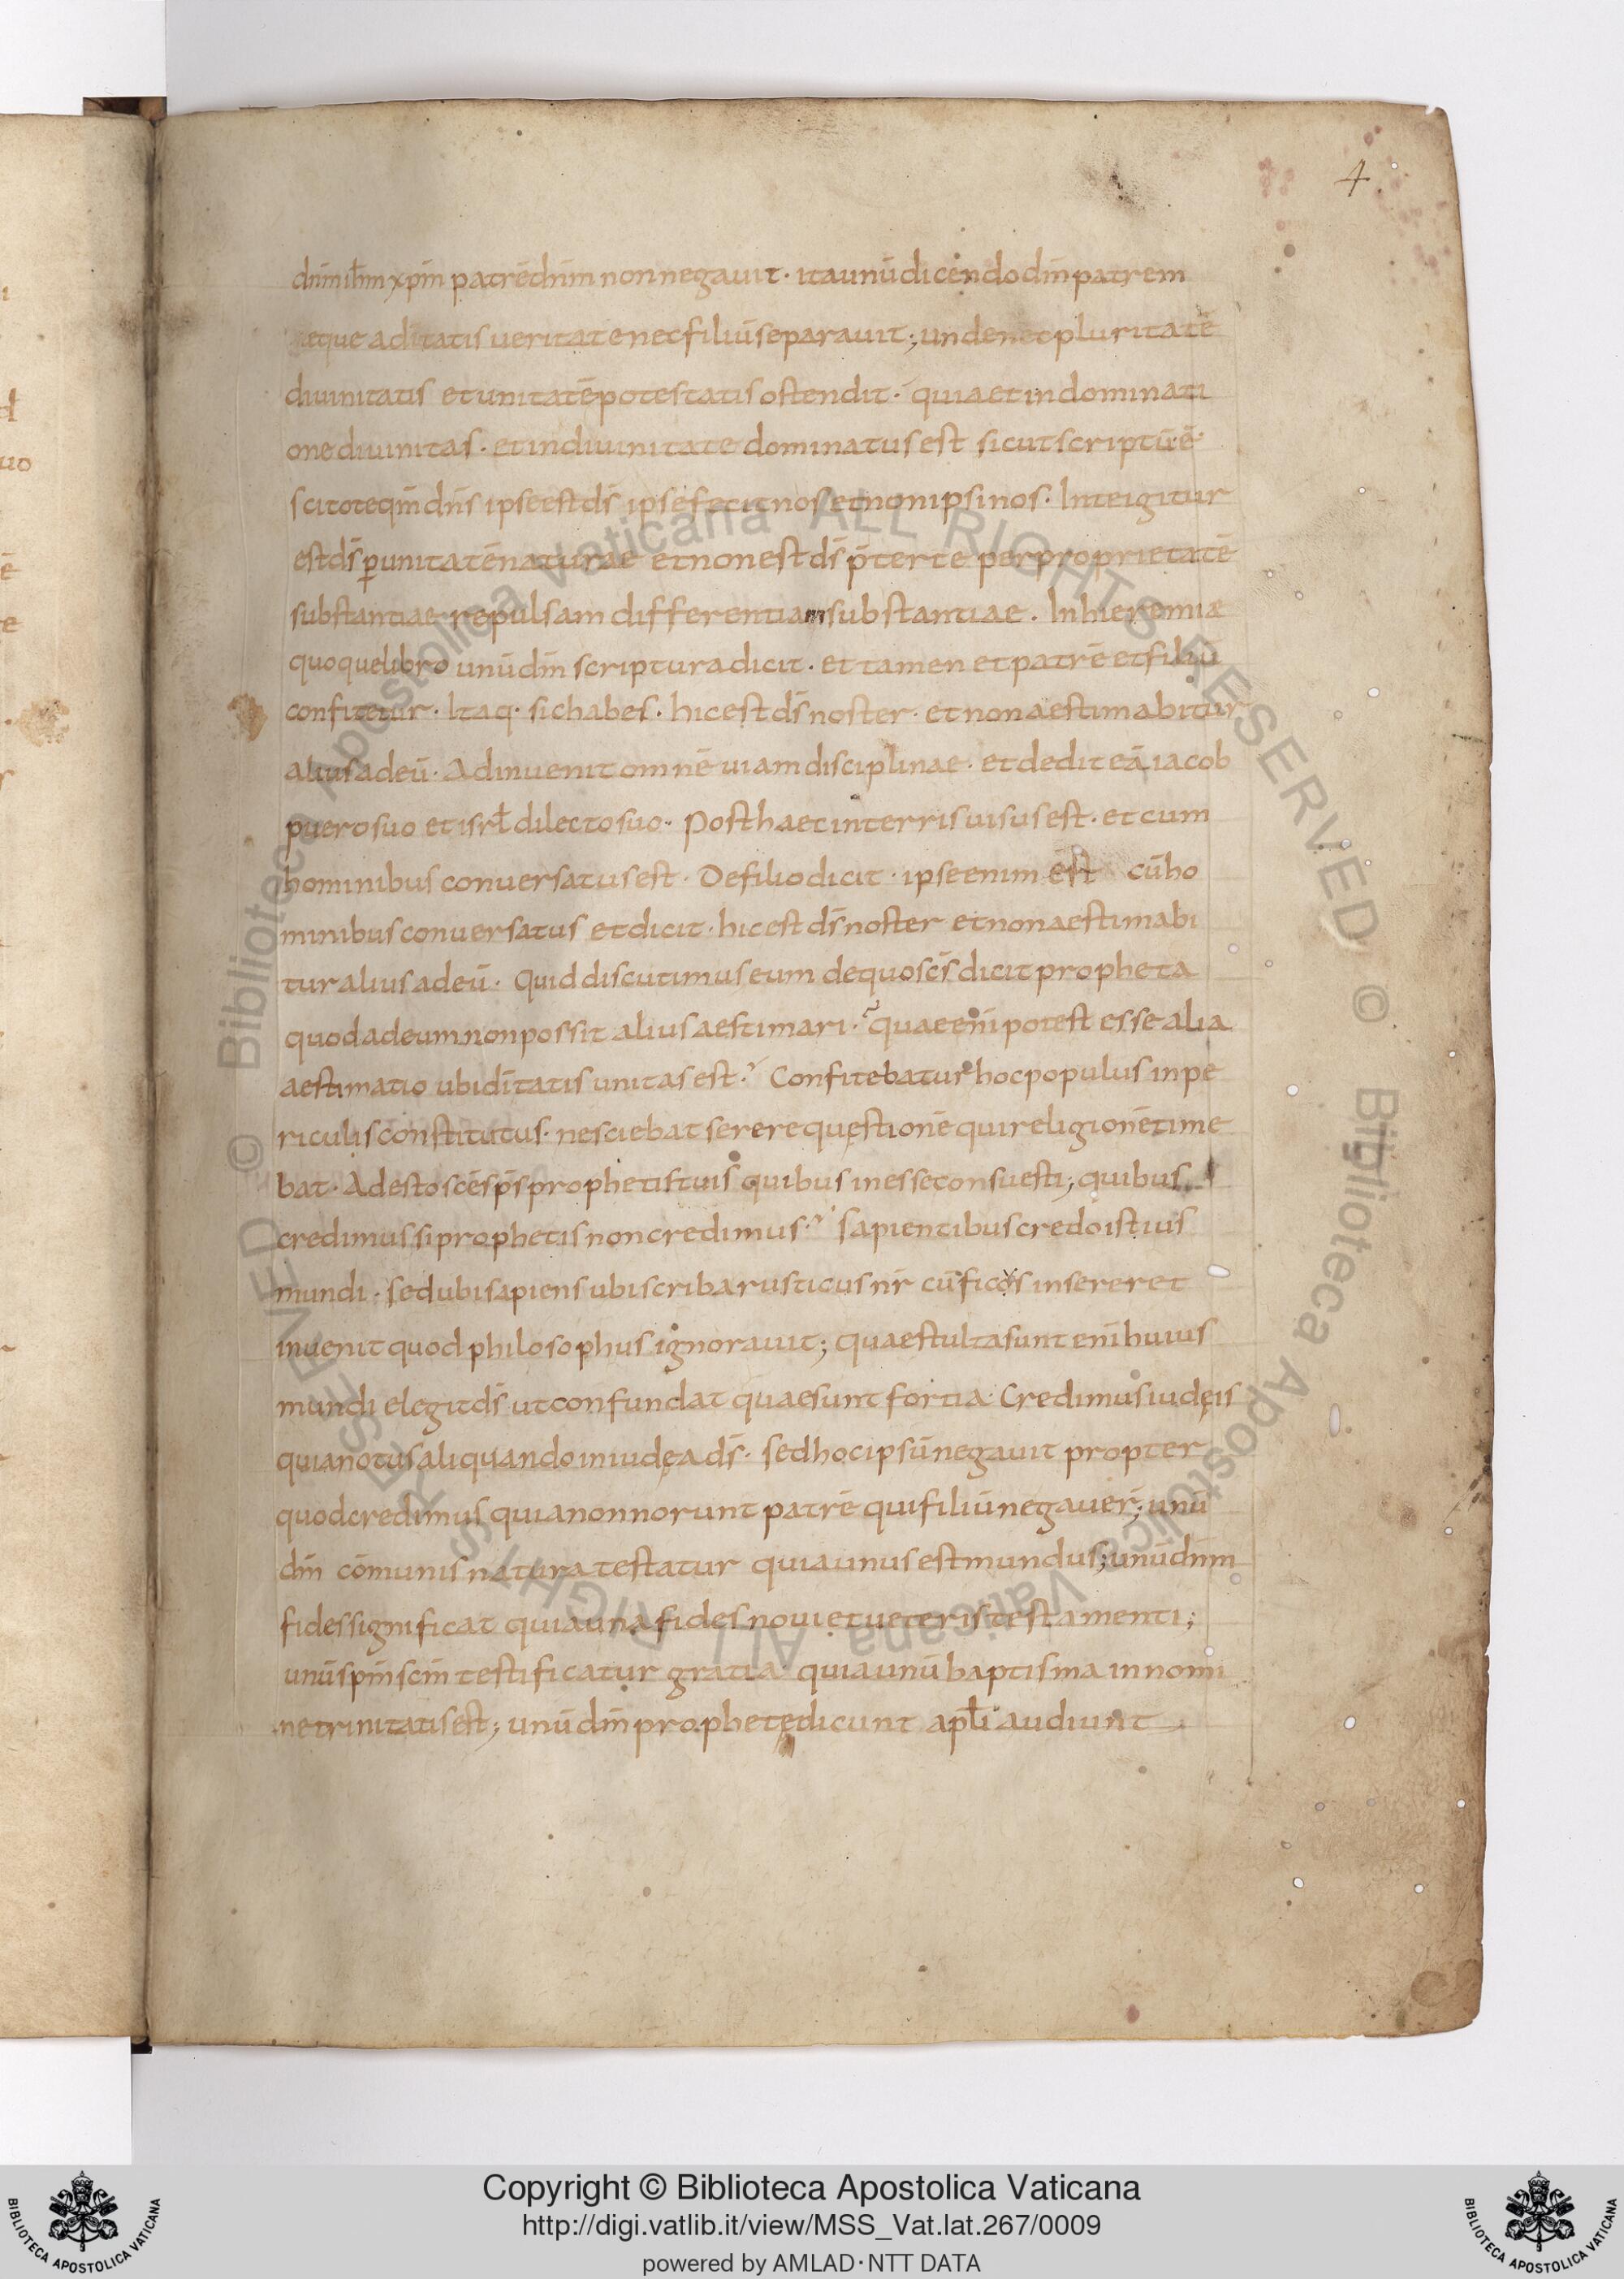 4
dnm ihm xpm patrē dnm non negauit · ita unū dicendo dm patrem
aeque aditatis ueritate nec filiū separauit ; unde nec pluritatē
diuinitatis et unitatē potestatis ostendit · quia et in dominati
one diuinitas · et in diuinitate dominatus est sicut scriptū ē ·
scitote qm dns ipse est ds ipse fecit nos et non ipsi nos · In te igitur
est ds ꝑ unitatē naturae et non est ds p̄ter te per proprietatē
substantiae repulsam differentiam substantiae . In hieremiæ
quoque libro unū dm scriptura dicit . et tamen et patrē et filiū
confitetur · Itaq · sic habes · hic est ds noster · et non aestimabitur
alius ad eū · Adinuenit omnē uiam disciplinae · et dedit eā iacob
puero suo et isrł dilecto suo · Post haec in terris uisus est · et cum
hominibus conuersatus est · De filio dicit · ipse enim est cū ho
minibus conuersatus et dicit · hic est ds noster et non aestimabi
tur alius ad eū · Quid discutimus eum de quo scs dicit propheta
quod ad eum non possit alius aestimari · quae enī potest esse alia
aestimatio ubi dītatis unitas est ? Confitebatur hoc populus in pe
riculis constitutus · nesciebat serere quęstionē qui religionē time
bat · Adesto scē sps prophetis tuis quibus inesse consuesti ; quibus
credimus si prophetis non credimus ? Sapientibus credo istius
mundi · sed ubi sapiens ubi scriba rusticus nr cū ficos insereret
inuenit quod philosophus ignorauit ; quae stulta sunt enī huius
mundi elegit ds ut confundat quae sunt fortia · Credimus iudęis
quia notus aliquando in iudęa ds · sed hoc ipsū negauit propter
quod credimus quia non norunt patrē qui filiū negauer ; unū
dm cōmunis natura testatur quia unus est mundus ; unū dnm
fides significat quia una fides noui et ueteris testamenti ;
unū spm scm testificatur gratia · quia unū baptisma in nomi
ne trinitatis est ; unū dm prophetę dicunt apłi audiunt
Copyright © Biblioteca Apostolica Vaticana
http://digi.vatlib.it/view/MSS_Vat.lat.267/0009
powered by AMLAD · NTT DATA
BIBLIOTECA APOSTOLICA VATICANA
BIBLIOTECA APOSTOLICA VATICANA
© Biblioteca Apostolica Vaticana ALL RIGHTS RESERVED
© Biblioteca Apostolica Vaticana ALL RIGHTS RESERVED